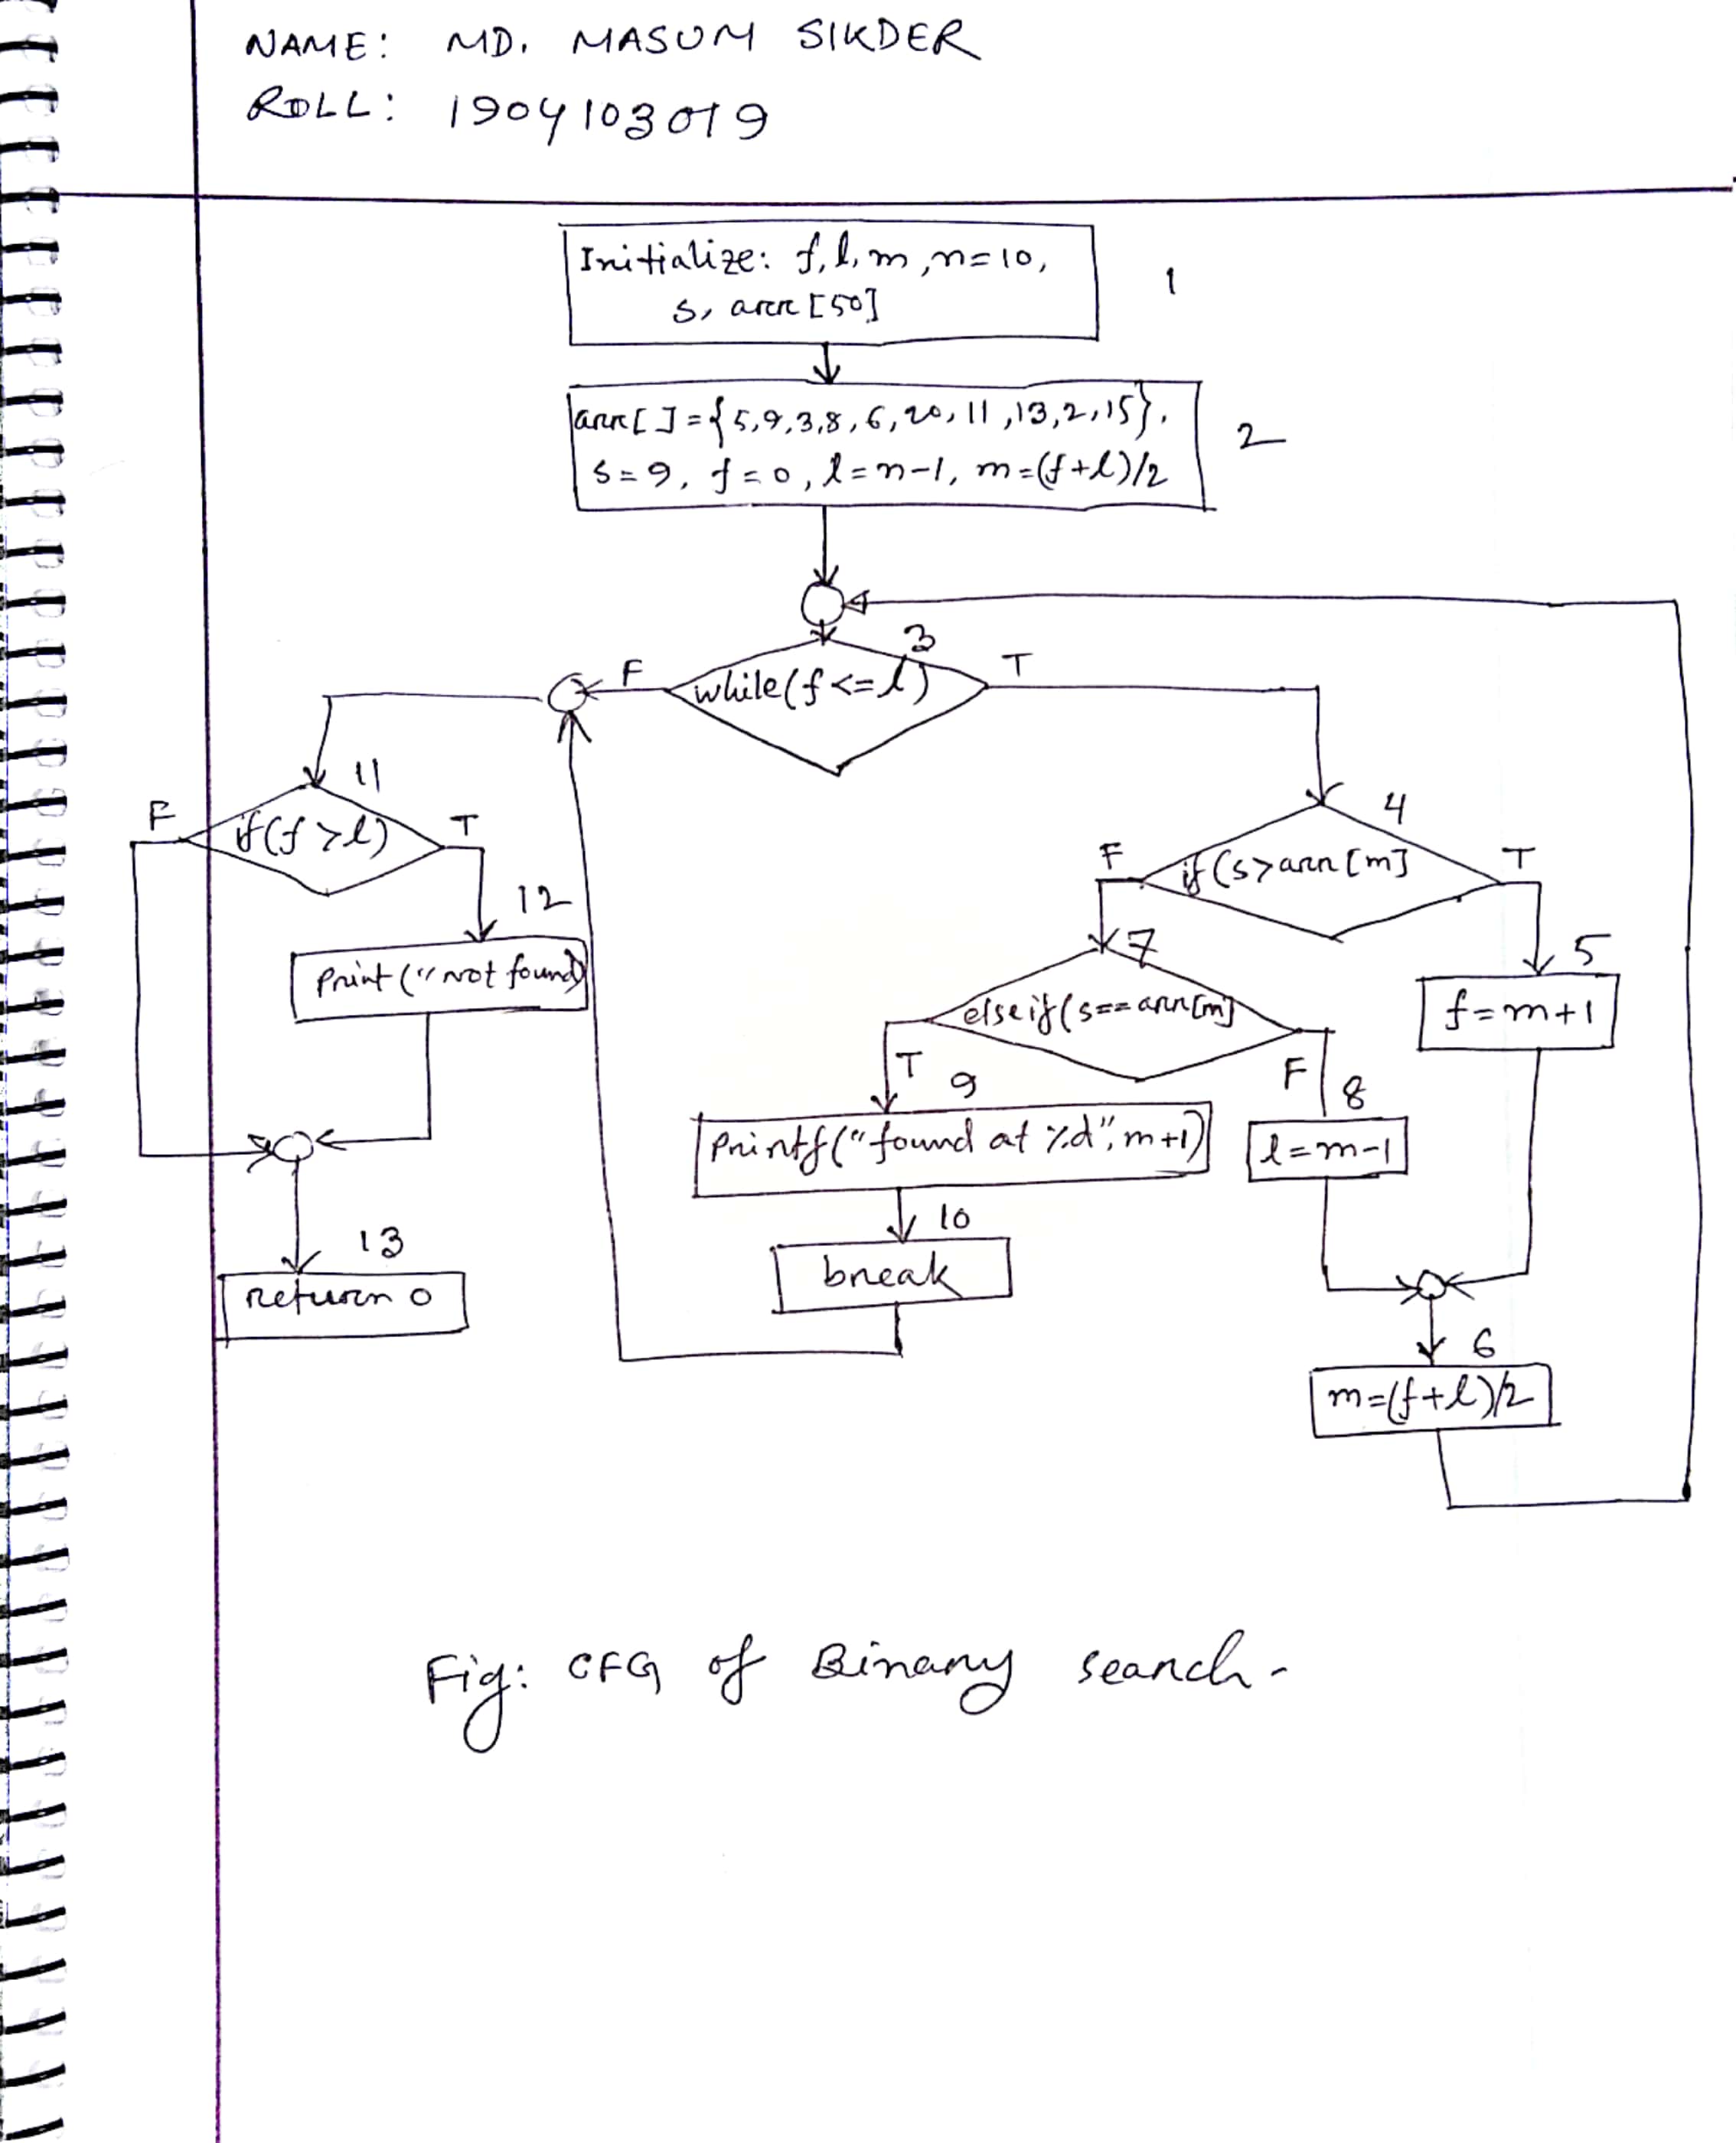 NAME: MD. MASUM SIKDER
ROLL: 1904103019
Initialize: f, l, m, n=10,
s, arr[50]
1
arr[]={5,9,3,8,6,20,11,13,2,15},
s=9, f=0, l=n-1, m=(f+l)/2
2
3
while(f<=l)
F
T
11
if(f>l)
F
T
12
print("not found)
13
return 0
4
if(s>arr[m]
F
T
5
f=m+1
7
elseif(s==arr[m]
T
F
9
printf("found at %d", m+1)
8
l=m-1
10
break
6
m=(f+l)/2
Fig: CFG of Binary search-